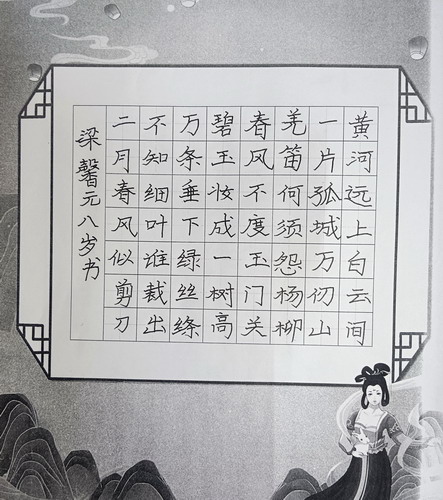 黄河远上白云间
一片孤城万仞山
羌笛何须怨杨柳
春风不度玉门关
碧玉妆成一树高
万条垂下绿丝绦
不知细叶谁裁出
二月春风似剪刀
梁馨元八岁书